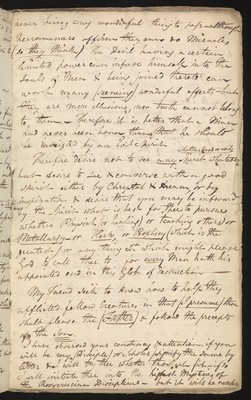 never brings any wonderful thing to pass although
Necromancers affirm they can do Miracles
to they think) the Devil having a certain
limited power can infuse himself into the
Souls of Men & being joined thereto can
work many seeming wonderful effects but
they are mere illusions, nor truth cannot belong
to them — Therefore it is better that a Man
had never been born than that he should
be inveigled by an Evil Spirit
Therefore desire not to see any Spirit
but desire to see & converse with a good
Spirit either by Chrystal & dream, or by
inspiration & desire that you may be informed
by the Spirit what is best for thee to pursue
whether (Physick, or healing) or teaching others or
or or Prophecy (which is the
greatest) or any thing else which might please
God to call thee to for every Man hath his
appointed end in the Globe of
My Friend seek to know how to help thy
afflicted fellow Creatures in that I presume thou
shalt please the (Father) & follow the precepts
of the Son —
I have observed your constancy & attention if you
will be my Disciple, or Scholar signify the same by
letter & I will to thee whether
I will initiate thee into the highest Mysteries of
the Rosycrucian Discipline — but it will be